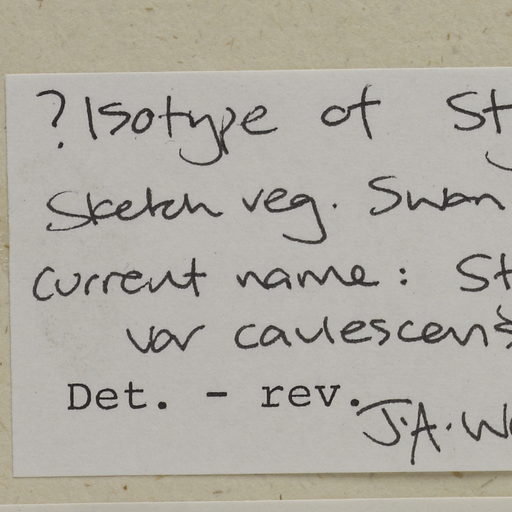 ? Isotype of St
Sketch veg. Swan
current name: St
var caulescens
Det. - rev. J.A. W